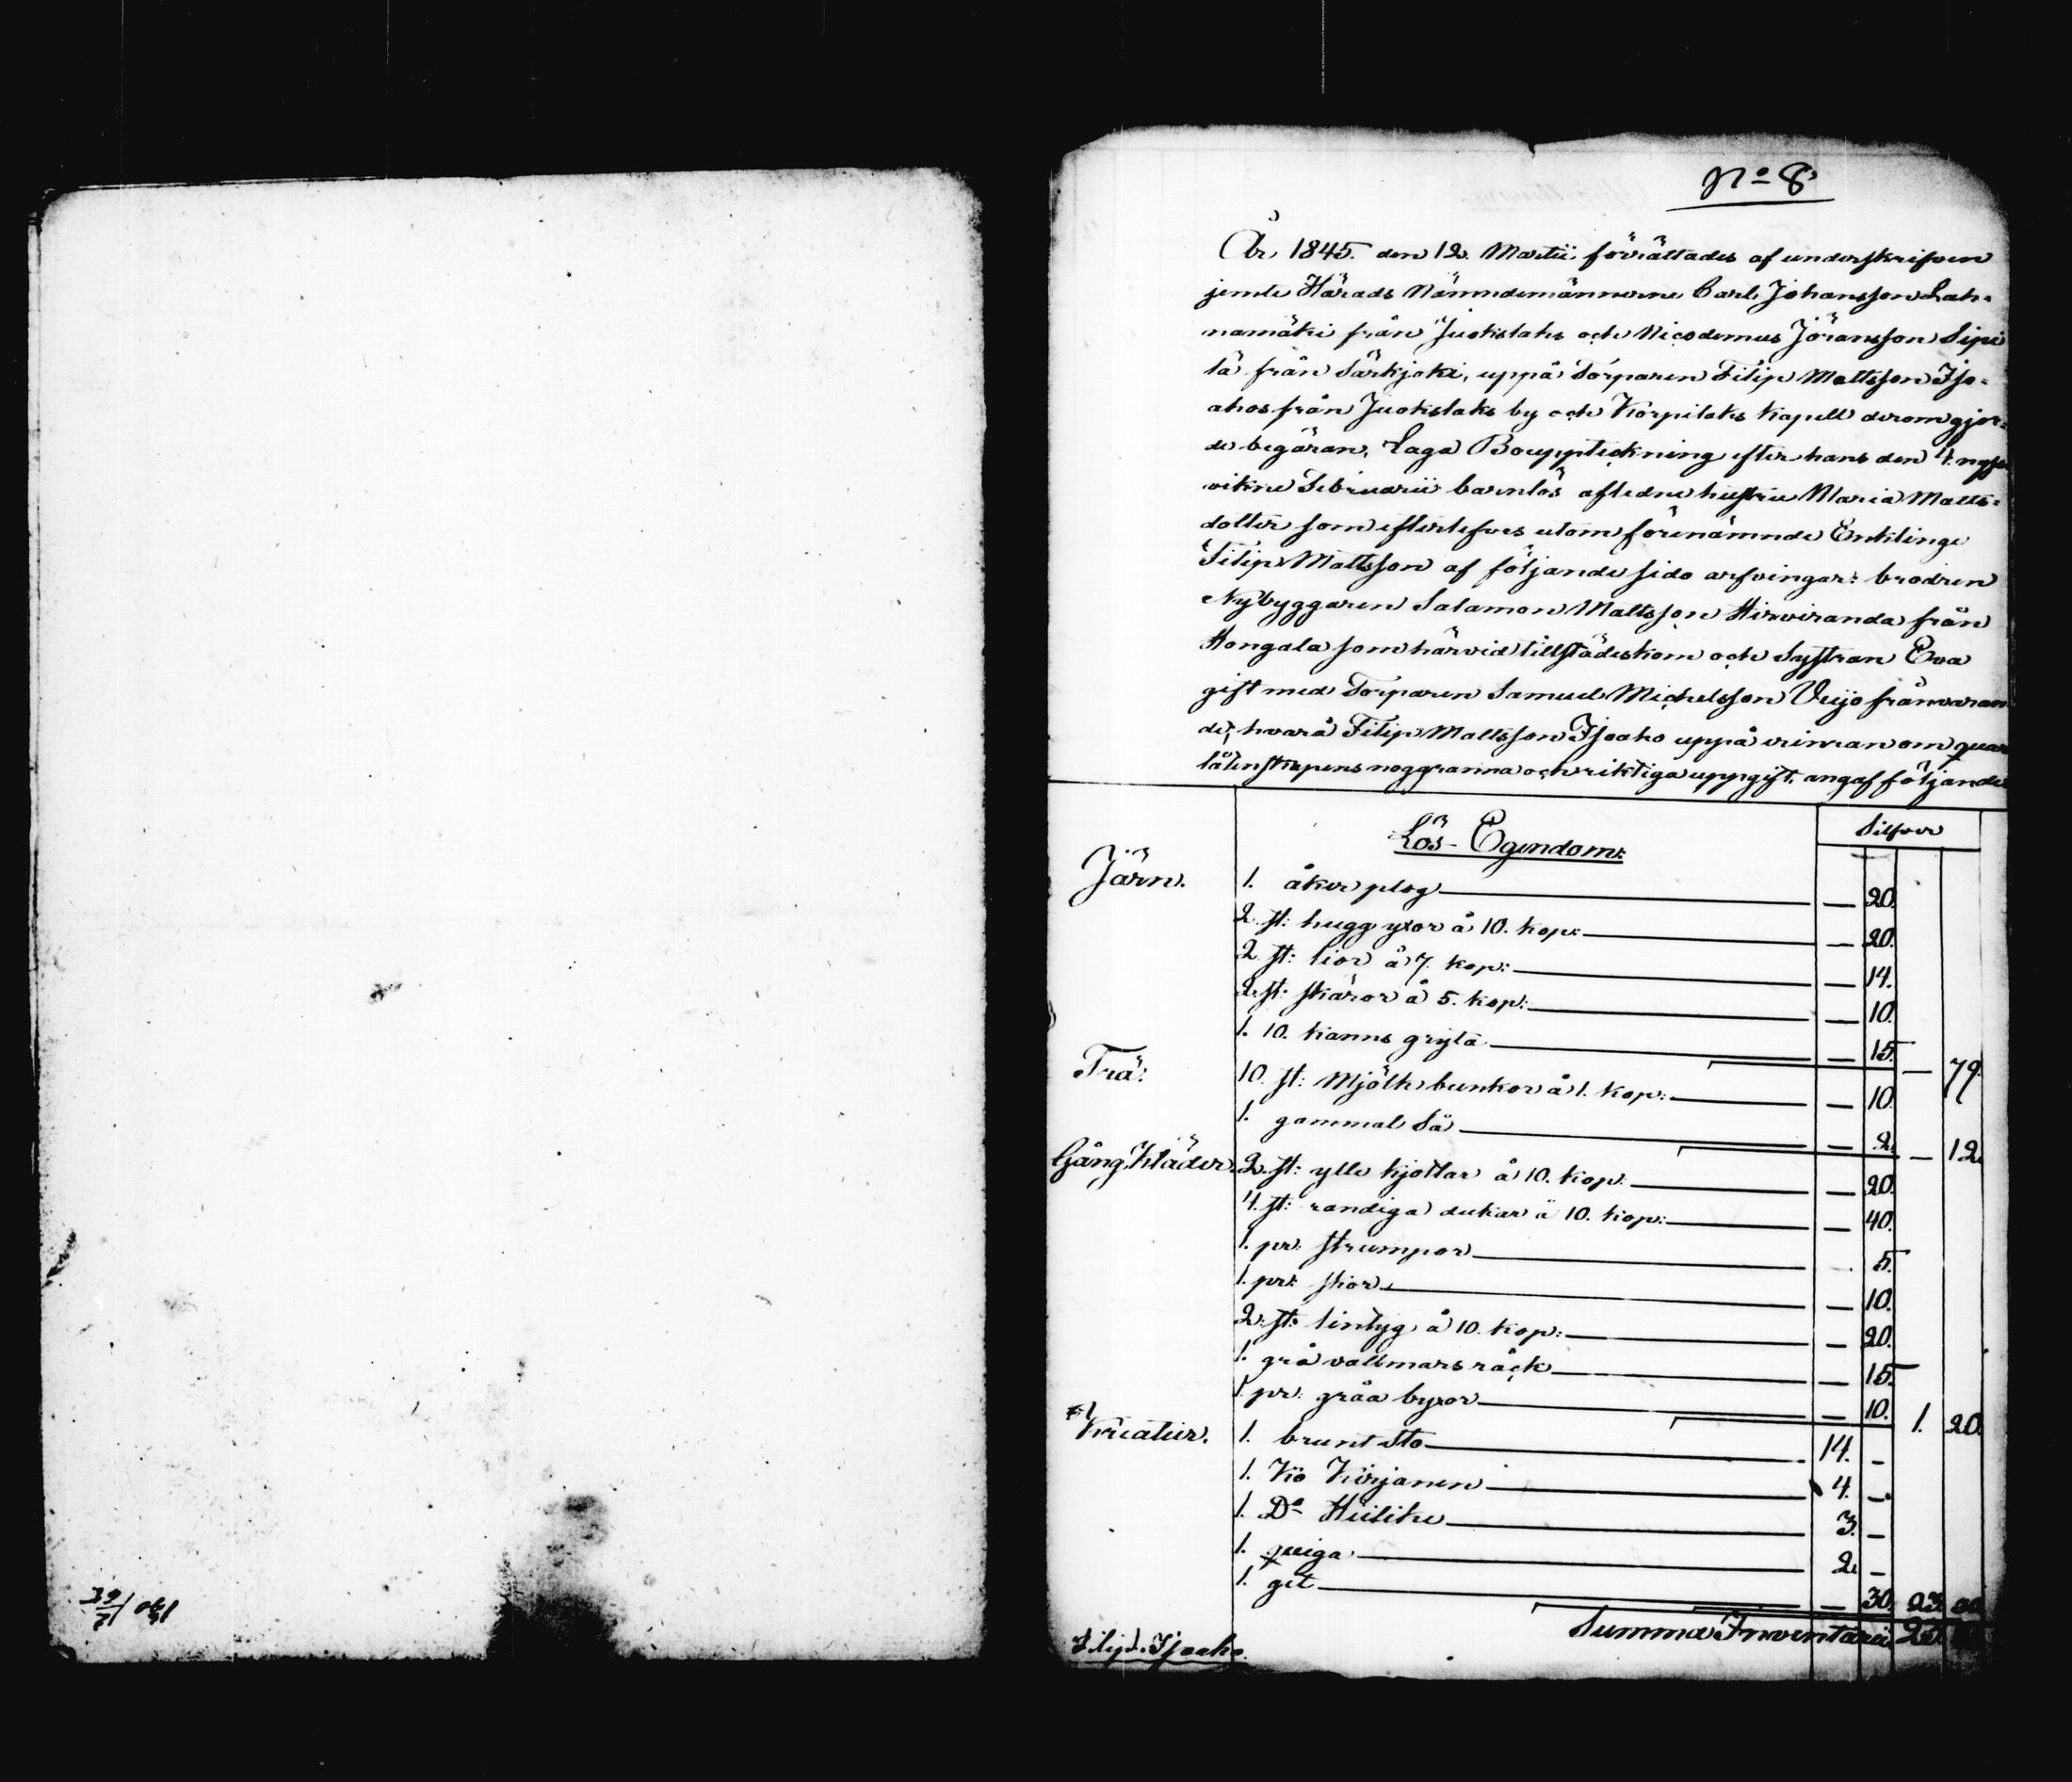 No 8.
År 1845. den 12. Martii förrättades af underskrifven
jemte Härads Nämndemännerne Carl Johansson Lah-
namäki från Juokslaks och Nicodemus Jöransson Sipi
lä från Särkjoki, uppå Torparen Filip Mattsson Iso-
ahos från Juokslaks by och Korpilaks Kapell derom gjor-
de begäran, Laga Bouppteckning efter hans den 4. nyss
vikne Februarii barnlös afledne hustru Maria Matts-
dotter som efterlefves utom förenämnde Enklinge
Filip Mattsson af följande sido arfvingar: brodren
Nybyggaren Salamon Mattsson Hirviranda från
Hongala som härvid tillstädeskom och Systran Eva
gift med Torparen Samuel Michelsson Veijo frånvaran
de; hvarå Filip Mattsson Isoaho uppå erinran om quar
låtenskapens noggranna och riktiga uppgift, angaf följande
Lös-Egendom:
Silfver
Järn. 1. åker plog — 20.
2. st: hugg yxor à 10. kop: — 20.
2. st: lior à 7. kop: — 14.
2. st: skäror à 5. kop: — 10.
1. 10. kanns gryta — 15. — 79.
Trä: 10. st: Mjölk bunkor à 1. kop: — 10.
1. gammal Så — 2. — 12.
Gång Kläder. 2. st: ylle kjortlar à 10. kop: — 20.
4. st: randiga dukar à 10. kop: — 40.
1. pr: strumpor — 5.
1. pr: skor — 10.
2. st: lintyg à 10. kop: — 20.
1. grå vallmars råck — 15.
1. pr: gråa byxor — 10. 1. 20.
Kreatur. 1. brunt Sto 14. —
1. Ko Kirjanen 4. —
1. Do Hiilike 3. —
1. quiga 2. —
1. get — 30. 23. 30.
Summa Inventarii
Filip. Isoaho.